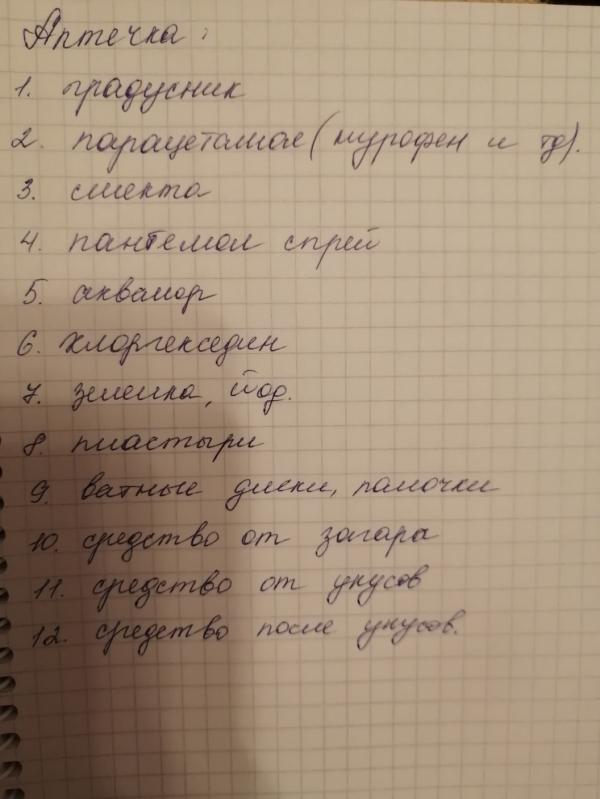 Аптечка:
1. градусник
2. парацетамол (нурофен и тд).
3. смекта
4. пантемол спрей
5. аквамор
6. хлоргекседин
7. зеленка, йод.
8. пластыри
9. ватные диски, палочки
10. средство от загара
11. средство от укусов
12. средство после укусов.